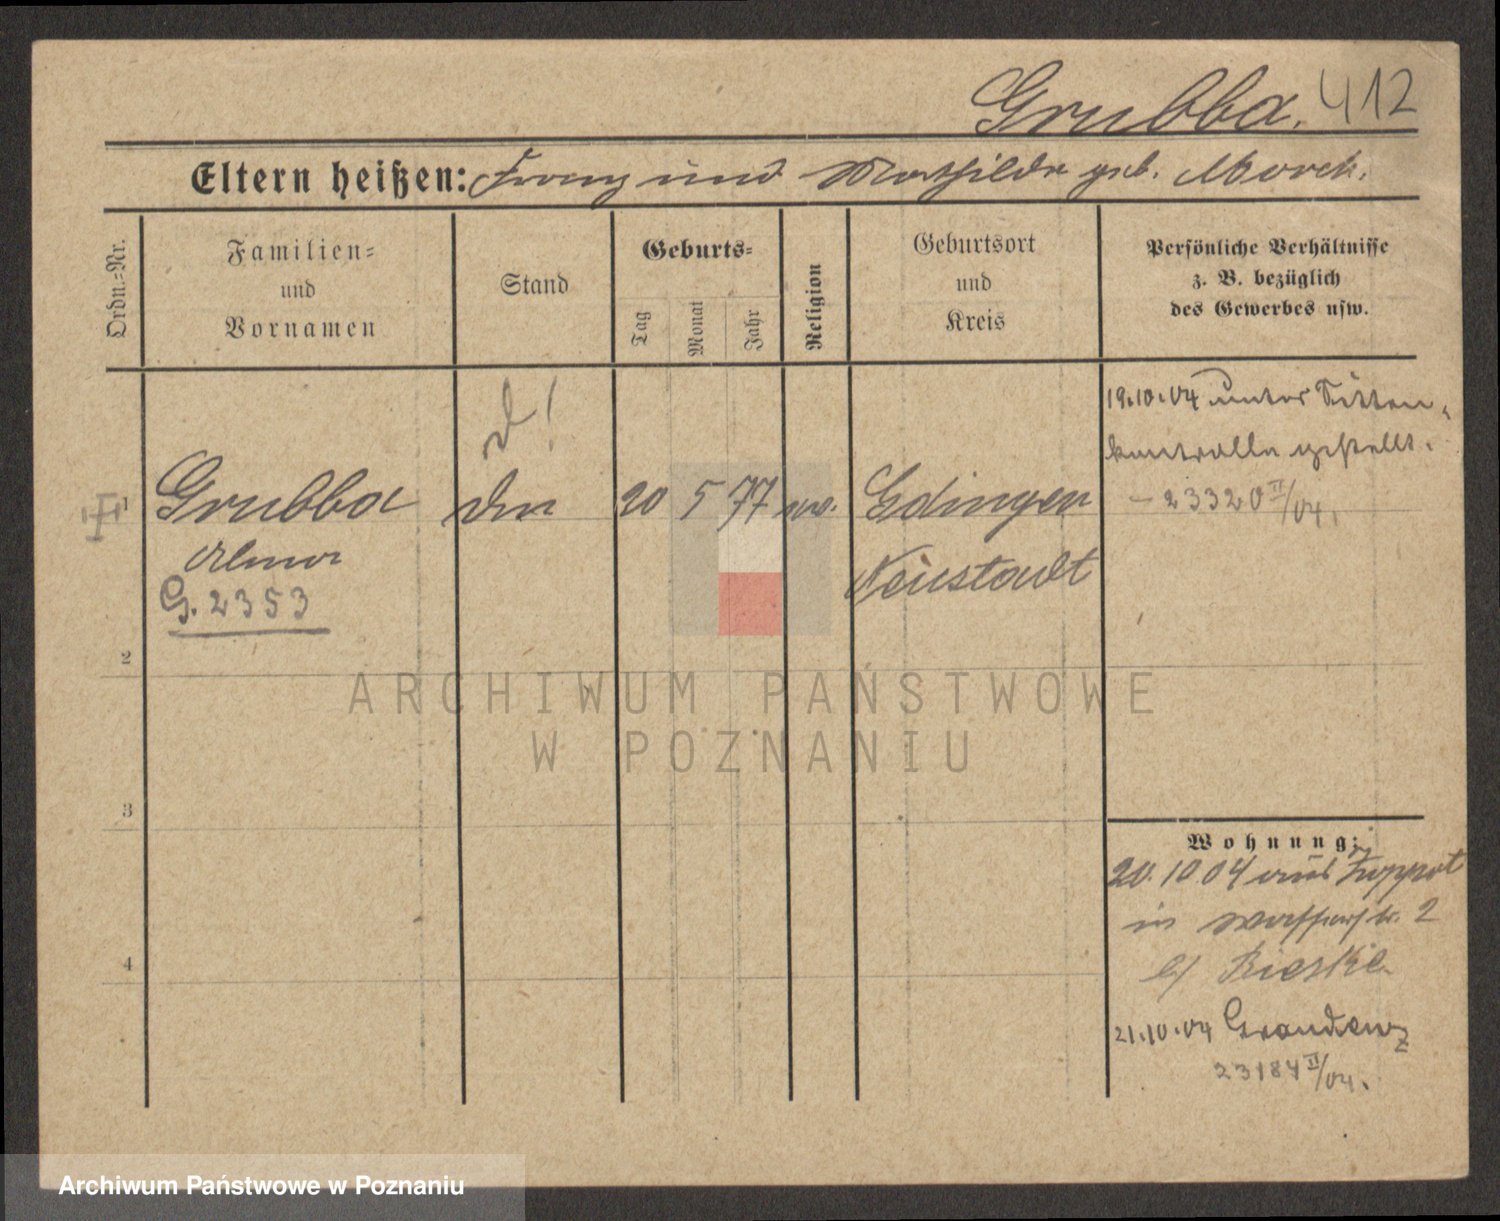 Grubba. 412
Eltern heißen: Franz und Mathilde geb. Morch.
Ordn.-Nr.
Familien-
und
Vornamen
Stand
Geburts-
Tag
Monat
Jahr
Religion
Geburtsort
und
Kreis
Persönliche Verhältnisse
z. B. bezüglich
des Gewerbes usw.
19.10.04 unter Sitten-
kontrolle gestellt.
- 23320 II/04.
1 Grubba 20 5 77 Edingen
Neustadt
G. 2353
2
3
4
Wohnung:
20.10 04 aus Zoppot
in Wasserstr. 2
b/ Rieske
21.10.04 Graudenz
23184 II/04.
ARCHIWUM PAŃSTWOWE
W POZNANIU
Archiwum Państwowe w Poznaniu